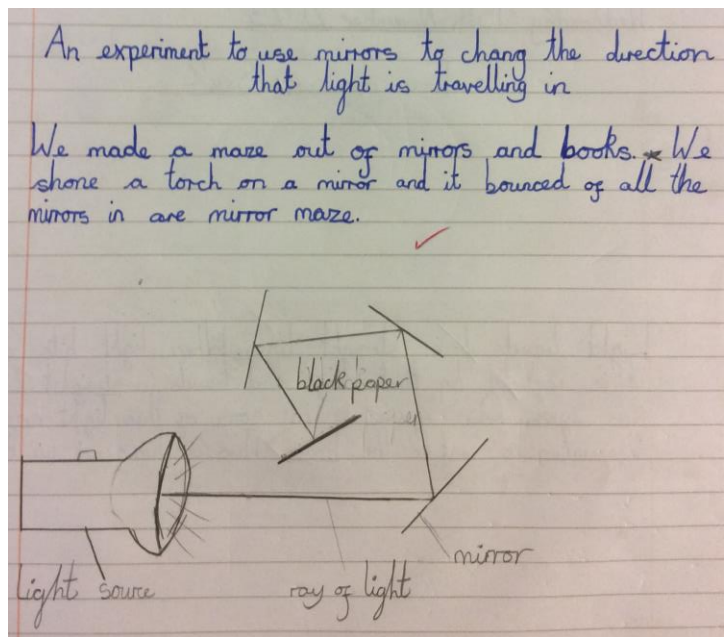 An experiment to use mirrors to chang the direction
that light is travelling in
We made a maze out of mirrors and books. * We
shone a torch on a mirror and it bounced of all the
mirrors in are mirror maze.
black paper
mirror
light source
ray of light